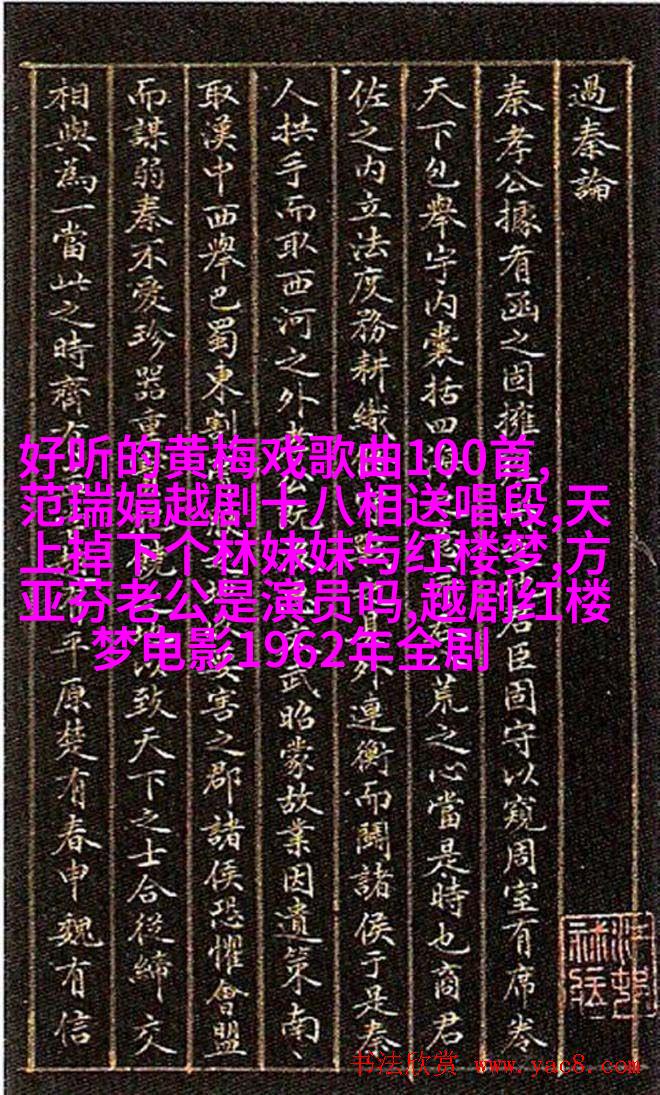 過秦論
秦孝公據有函之固擁君臣固守以窺周室有席卷
天下包舉宇内囊括四荒之心當是時也商君
佐之内立法度務耕織外連衡而鬪諸侯于是秦
人拱手而取西河之外武昭蒙故業因遺策南
取漢中西舉巴蜀東割害之郡諸侯恐懼會盟
而謀弱秦不愛珍器重以致天下之士合從締交
相與為一當此之時齊平原楚有春申魏有信
好听的黄梅戏歌曲100首,
范瑞娟越剧十八相送唱段,天
上掉下个林妹妹与红楼梦,方
亚芬老公是演员吗,越剧红楼
梦电影1962年全剧
书法欣赏 www.yac8.com